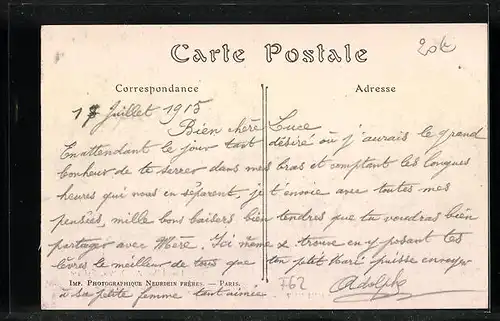 Carte Postale
20k
Correspondance
Adresse
17 Juillet 1915
Bien chère Luce
En attendant le jour tant désiré où j'aurais le grand
bonheur de te serrer dans mes bras et comptant les longues
heures qui nous en séparent, je t'envoie avec toutes mes
pensées, mille bons baisers bien tendres que tu voudras bien
partager avec Mère. Ici même se trouve en y posant tes
lèvres le meilleur de tous que ton ptit Mari puisse envoyer
à sa petite femme tant aimée.
IMP. PHOTOGRAPHIQUE NEURDEIN FRÈRES. — PARIS.
762
Adolphe